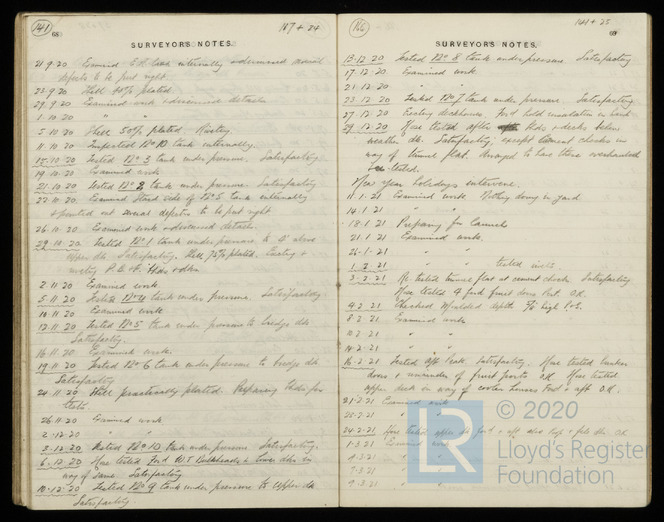 141
68
167 + 24
SURVEYOR'S NOTES.
21.9.20 Examined tank internally + discussed
defects to be put right
23.9.20 Hull 40% plated
29.9.20 Examined work + discussed details
1.10.20 " "
5.10.20 Shell 50% plated. Riveting
11.10.20 Inspected No 10 tank internally.
15.10.20 Tested No 3 tank under pressure. Satisfactory.
19.10.20 Examined work
21.10.20 Tested No 2 tank under pressure. Satisfactory
22.10.20 Examined Stard side of No 5 tank internally
+ pointed out several defects to be put right
26.10.20 Examined work + discussed details.
29.10.20 Tested No 1 tank under pressure to 8' above
upper dk. Satisfactory. Hull 75% plated.
riveting
2.11.20 Examined work
5.11.20 Tested No 4 tank under pressure. Satisfactory
10.11.20 Examined work
12.11.20 Tested No 5 tank under pressure to bridge dk
Satisfactory.
16.11.20 Examined work.
19.11.20 Tested No 6 tank under pressure to bridge dk
Satisfactory
24.11.20 Hull practically plated. Preparing Hdrs for
tests.
26.11.20 Examined work
2.12.20 " "
3.12.20 Tested No 10 tank under pressure Satisfactory.
6.12.20 Hose tested Ford W.T Bulkheads + lower dks in
way of same Satisfactory
10.12.20 Tested No 9 tank under pressure to upper dk
Satisfactory.
166
141 + 25
69
SURVEYOR'S NOTES.
13.12.20 Tested No 8 tank under pressure Satisfactory
17.12.20 Examined work
21.12.20 " "
23.12.20 Tested No 7 tank under pressure Satisfactory
27.12.20 Ford hold insulation in hand
29.12.20 Hose tested after Hdrs + decks below
weather dk. Satisfactory, except cement chocks in
way of tunnel flat. Arranged to have these overhauled
tested.
New year holidays intervene.
11.1.21 Examined work Nothing doing in yard
14.1.21 " "
18.1.21 Preparing for Launch
21.1.21 Examined work.
26.1.21 " "
1.2.21 " "
3.2.21 Re tested tunnel flat at cement chocks Satisfactory
Hose tested 4 ford doors Port. O.K.
4.2.21 Checked Moulded depth high P+S.
8.2.21 Examined work
10.2.21 " "
14.2.21 " "
16.2.21 Tested aft Peak Satisfactory. Hose tested bunker
doors + remainder of ports O.K. Hose tested
upper deck in way of cooler houses ford + aft O.K.
21.2.21 Examined work
22.2.21 " "
24.2.21 Hose tested upper dk ford + aft also O.K
1.3.21 Examined work
4.3.21 " "
7.3.21 " "
9.3.21 " "
LR
© 2020
Lloyd's Register
Foundation